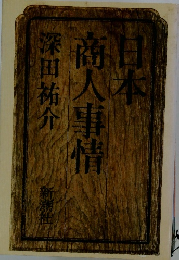 日本
商人事情
深田祐介
新潮社